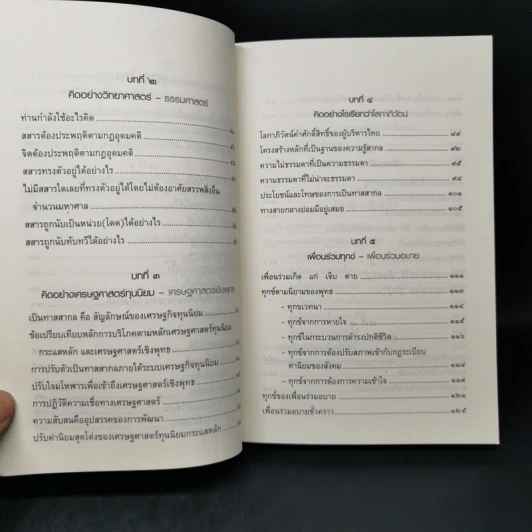 บทที่ ๒
คิดอย่างวิทยาศาสตร์ – ธรรมศาสตร์
ท่านกำลังใช้อะไรคิด
สสารต้องประพฤติตามกฎอุดมคติ
จิตต้องประพฤติตามกฎอุดมคติ
สสารทรงตัวอยู่ได้อย่างไร
ไม่มีสสารใดเลยที่ทรงตัวอยู่ได้โดยไม่ต้องอาศัยสรรพสิ่งอื่น
จำนวนมหาศาล
สสารถูกนับเป็นหน่วย(โดด)ได้อย่างไร
สสารถูกนับทับทวีได้อย่างไร
บทที่ ๓
คิดอย่างเศรษฐศาสตร์ทุนนิยม – เศรษฐศาสตร์เชิงพุทธ
เป็นทาสสากล คือ สัญลักษณ์ของเศรษฐกิจทุนนิยม
ข้อเปรียบเทียบหลักการบริโภคตามหลักเศรษฐศาสตร์ทุนนิยม
กระแสหลัก และเศรษฐศาสตร์เชิงพุทธ
การปรับตัวเป็นทาสสากลภายใต้ระบบเศรษฐกิจทุนนิยม
ปรับใจมโหฬารเพื่อเข้าถึงเศรษฐศาสตร์เชิงพุทธ
การปฏิวัติความเชื่อทางเศรษฐศาสตร์
ความสับสนคืออุปสรรคของการพัฒนา
ปรับค่านิยมสุดโต่งของเศรษฐศาสตร์ทุนนิยมกระแสหลัก
บทที่ ๔
คิดอย่างไรเรียกว่าโลกาภิวัฒน์
โลกาภิวัตน์คำศักดิ์สิทธิ์ของผู้บริหารไทย ๘๙
โครงสร้างหลักที่เป็นฐานของความรู้สากล ๙๒
ความไม่ธรรมดาที่เป็นความธรรมดา ๙๕
ความธรรมดาที่ไม่น่าจะธรรมดา ๙๘
ประโยชน์และโทษของการเป็นทาสสากล ๑๐๑
ทางสายกลางย่อมมีอยู่เสมอ ๑๐๕
บทที่ ๕
เพื่อนร่วมทุกข์ – เพื่อนร่วมอบาย
เพื่อนร่วมเกิด แก่ เจ็บ ตาย ๑๑๑
ทุกข์ตามนิยามของพุทธ ๑๑๓
- ทุกขเวทนา ๑๑๔
- ทุกข์จากการหายใจ ๑๑๕
- ทุกข์ในกระบวนการดำรงปกติชีวิต ๑๑๕
- ทุกข์จากการต้องปรับสภาพเข้ากับกฎระเบียบ
ค่านิยมของสังคม ๑๑๘
- ทุกข์จากการต้องการความเข้าใจ ๑๑๙
ทุกข์ของเพื่อนร่วมอบาย ๑๒๑
เพื่อนร่วมอบายชั่วคราว ๑๒๕